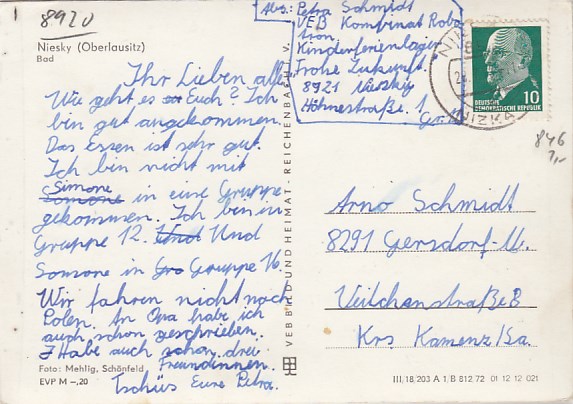 8920
Niesky (Oberlausitz)
Bad
Abs.: Petra Schmidt
VEB Kombinat Robo
tron
Kinderferienlager
Frohe Zukunft
8921 Nieszky
Höhnestraße 1
Gr.
DEUTSCHE
DEMOKRATISCHE REPUBLIK
10
NIZKA
846
1,-
Ihr Lieben alle
Wie geht es Euch? Ich
bin gut angekommen.
Das Essen ist sehr gut.
Ich bin nicht mit
Simone
in eine Gruppe
gekommen. Ich bin in
Gruppe 12. Und Und
Somone in Gro Gruppe 16.
Wir fahren nicht nach
Polen. In Opa habe ich
auch schon geschrieben.
Habe auch schon drei
Freundinnen.
Tschüs Eure Petra.
Foto: Mehlig, Schönfeld
EVP M –,20
VEB BILD UND HEIMAT · REICHENBACH I. V.
Arno Schmidt
8291 Gersdorf-M.
Veilchenstraße 8
Krs Kamenz/Sa.
III/18/203 A 1/B 812/72 01 12 12 021